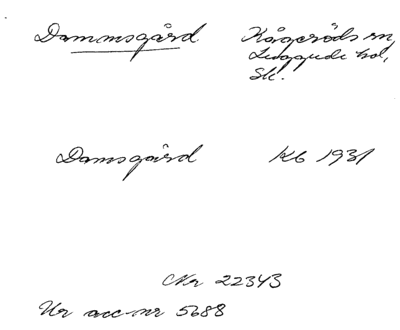 Dammsgård Kågeröds sn,
Luggude hd,
Sk.
Damsgård K6 1931
Nr 22343
Ur acc-nr 5688